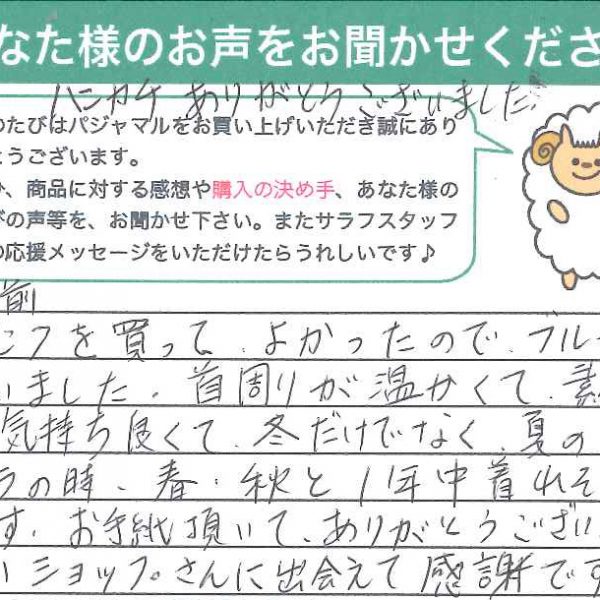 なた様のお声をお聞かせくださ
ハンカチ ありがとうございました。
のたびはパジャマルをお買い上げいただき誠にあり
とうございます。
、商品に対する感想や購入の決め手、あなた様の
の声等を、お聞かせ下さい。またサラフスタッフ
の応援メッセージをいただけたらうれしいです♪
前
ンクを買って、よかったので、ブル
いました。首周りが温かくて、素
気持ち良くて、冬だけでなく、夏の
ラの時、春・秋と1年中着れそ
す。お手紙頂いて、ありがとうござい
いショップさんに出会えて感謝です